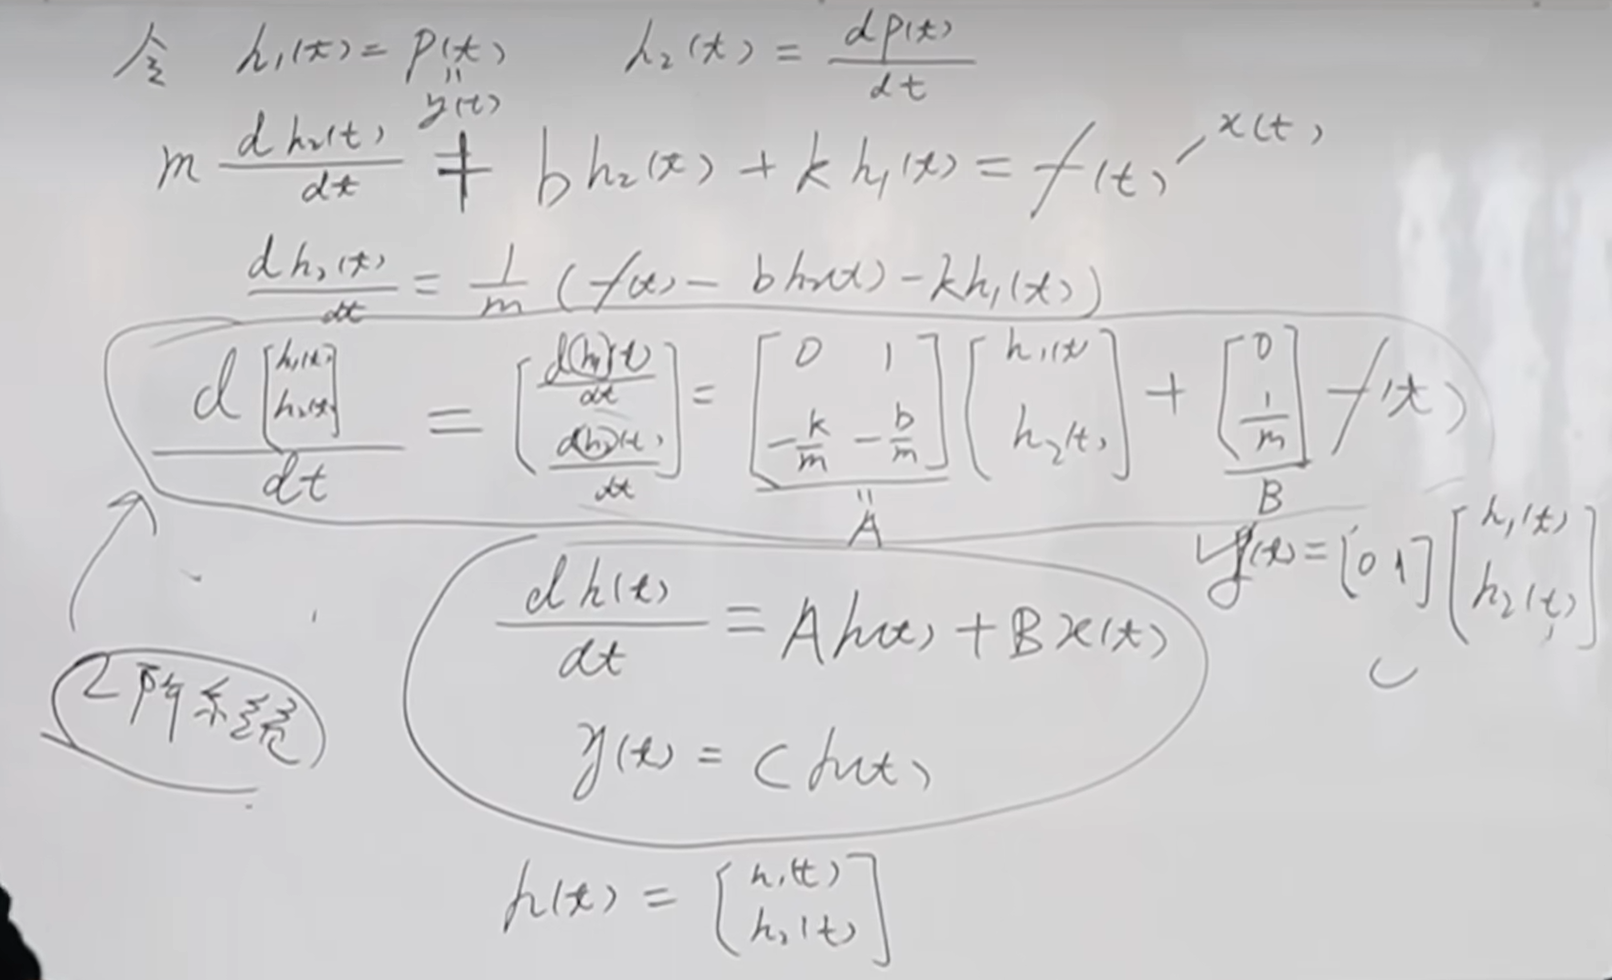 令 h₁(t) = P(t) h₂(t) = dP(t)/dt
"
y(t)
m dh₂(t)/dt + b h₂(t) + k h₁(t) = f(t) x(t)
dh₂(t)/dt = 1/m (f(t) - b h₂(t) - k h₁(t))
d[h₁(t) h₂(t)]/dt = [d(h₁)(t)/dt d(h₂)(t)/dt] = [0 1 -k/m -b/m] [h₁(t) h₂(t)] + [0 1/m] f(t)
" A B
y(t) = [0 1] [h₁(t) h₂(t)]
dh(t)/dt = A h(t) + B x(t)
2階系統
y(t) = C h(t)
h(t) = [h₁(t) h₂(t)]